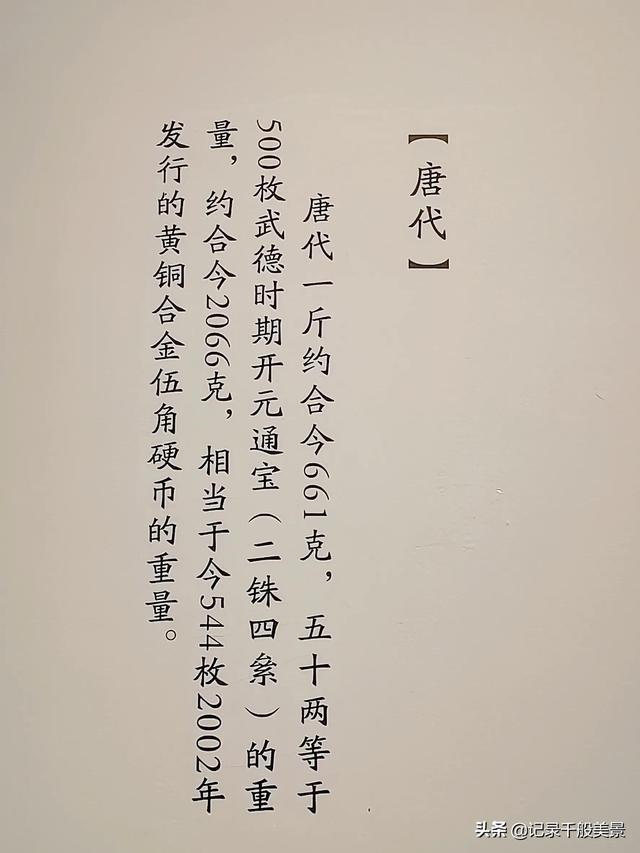 【唐代】
唐代一斤约合今661克，五十两等于
500枚武德时期开元通宝（二铢四絫）的重
量，约合今2066克，相当于今544枚2002年
发行的黄铜合金伍角硬币的重量。
头条 @记录千般美景